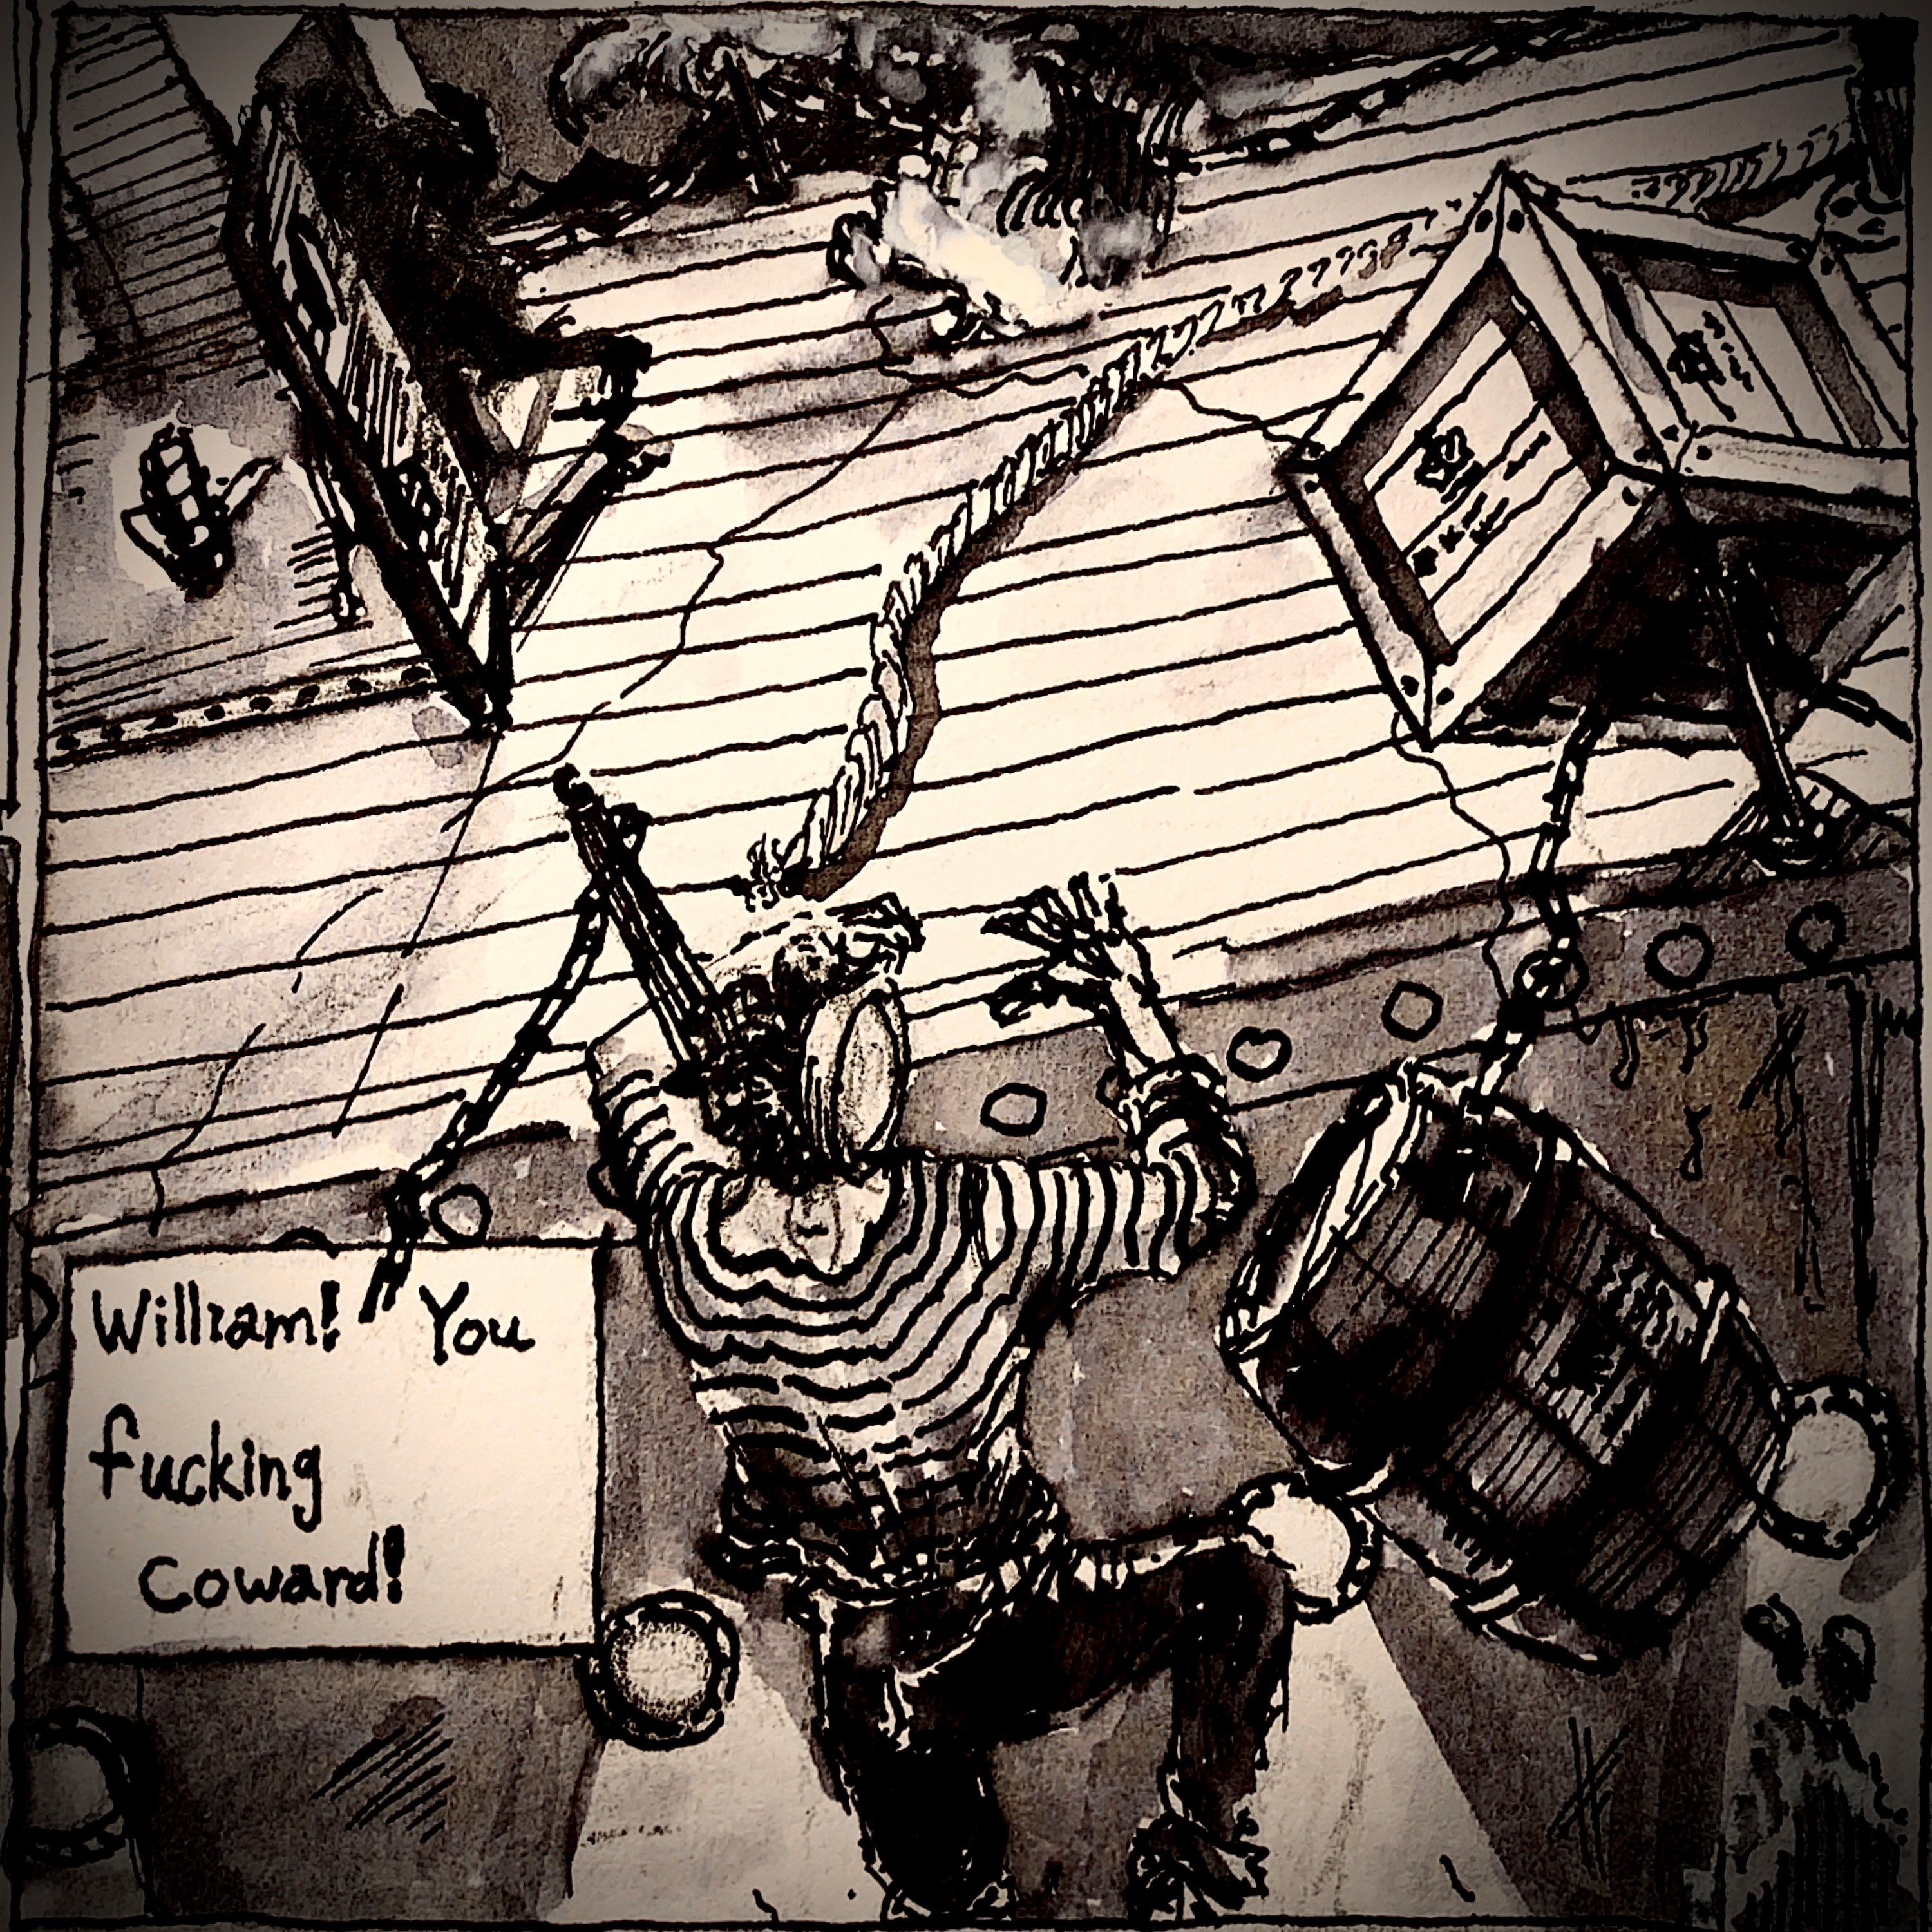 William! You
fucking
Coward!